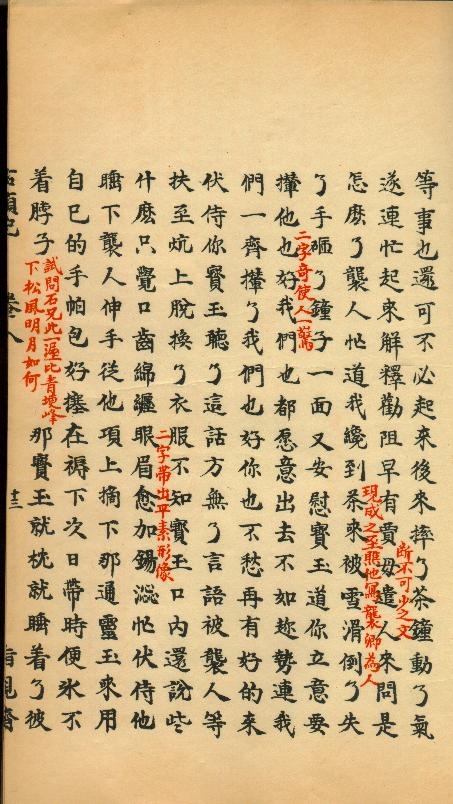 等事也還可不必起來後來摔了茶鐘動了氣
遂連忙起來解釋勸阻早有賈母遣人來問是
斷不可少之文
怎麽了襲人忙道我纔到茶來被雪滑倒了失
現成之至瞧他寫襲卿為人
了手砸了鐘子一面又安慰寶玉道你立意要
二字奇使人一驚
攆他也好我們也都愿意出去不如趂勢連我
們一齊攆了我們也好你也不愁再有好的來
伏侍你寶玉聽了這話方無了言語被襲人等
扶至炕上脫換了衣服不知寶玉口內還說些
二字帶出平素形像
什麽只覺口齒綿纏眼眉愈加餳澁忙伏侍他
睡下襲人伸手從他項上摘下那通靈玉來用
自己的手帕包好塞在褥下次日帶時便氷不
着脖子
試問石兄此一渥比青埂峰
下松風明月如何
那寶玉就枕就睡着了彼
石頭記
卷八
十三
脂硯齋